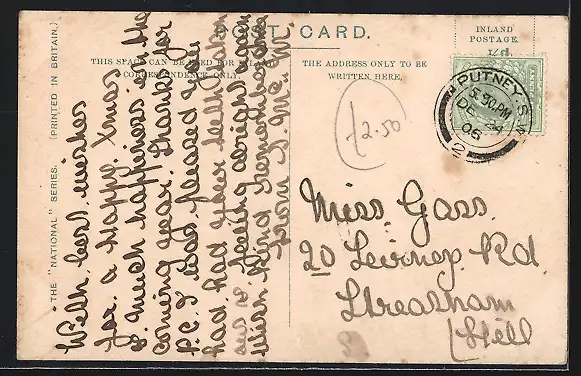 POST CARD.
THIS SPACE CAN BE USED FOR
CORRESPONDENCE ONLY.
THE ADDRESS ONLY TO BE
WRITTEN HERE.
INLAND
POSTAGE
½d.
PUTNEY. S.W.
5.30PM
DE 24
05
2
£2.50
Miss. Gass.
20 Leirnep Rd
Streatham
Hill
THE "NATIONAL" SERIES. (PRINTED IN BRITAIN.)
With best wishes
for a Happy Xmas
& much happiness in the
coming year. Thanks for
P.C. I was pleased you
had had your teeth
out & feeling alright
With kind remembrances
from